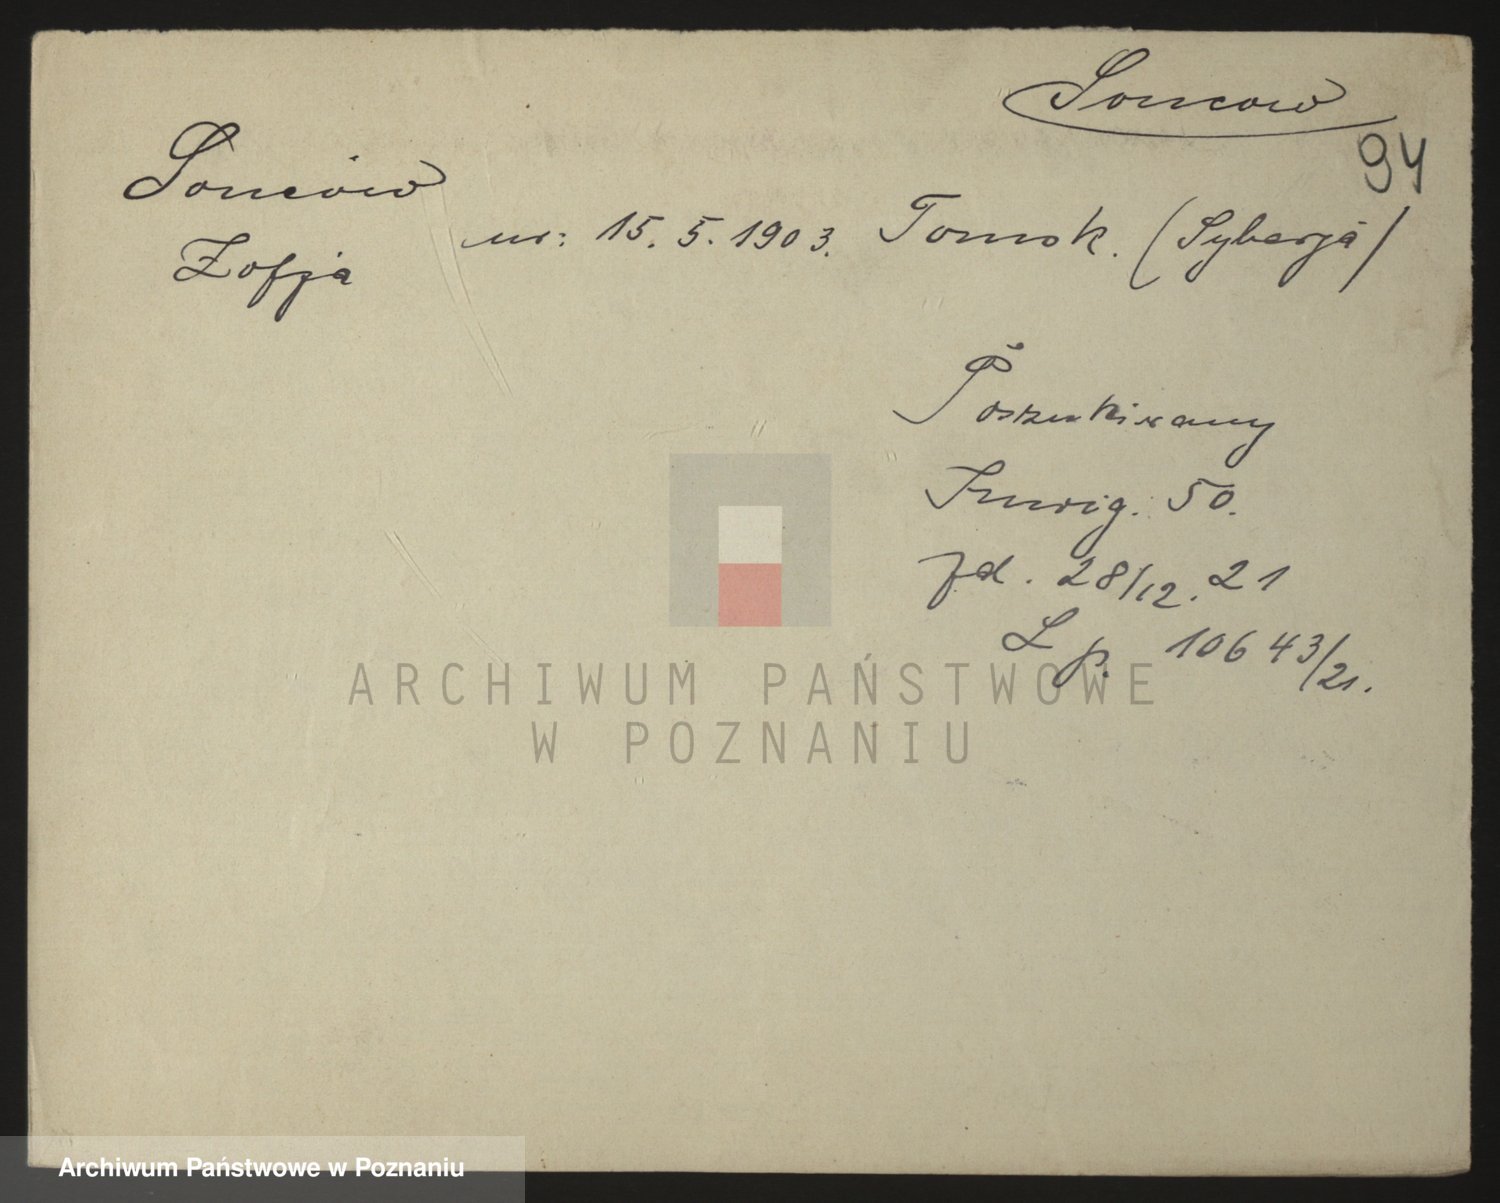 Soncow
94
Sonców
Zofja
ur: 15. 5. 1903. Tomsk. (Syberja)
Poszukiwany
50.
zd. 28/12. 21
L p. 10643/21.
ARCHIWUM PAŃSTWOWE
W POZNANIU
Archiwum Państwowe w Poznaniu